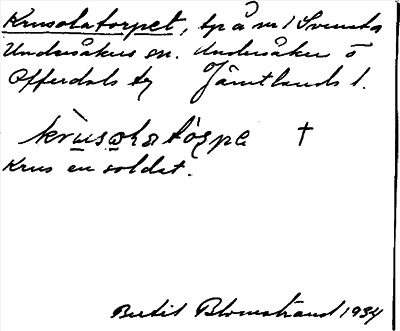 Krusolatorpet, tp å nr 1 Svenska
Undersåkers sn. Undersåker o
Offerdals tg Jämtlands l.
krùsola tòrpe †
Krus en soldat.
Bertil Blomstrand 1934